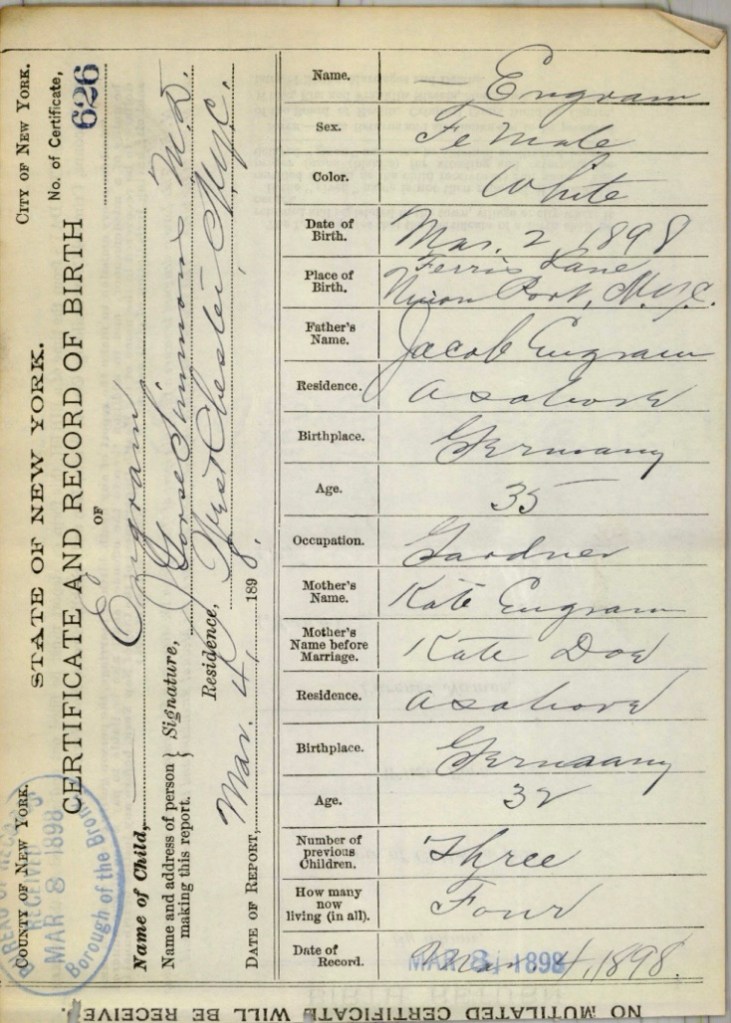 STATE OF NEW YORK.
COUNTY OF NEW YORK.
CITY OF NEW YORK.
CERTIFICATE AND RECORD OF BIRTH
No. of Certificate,
626
OF
Name of Child, Engram
Name and address of person making this report. } Signature, Simmons M.D.
Residence, West Chester, N.Y.C.
DATE OF REPORT, Mar. 4, 1898.
RECEIVED
MAR 8 1898
Borough of the Bronx
Name. Engram
Sex. Female
Color. White
Date of Birth. Mar. 2, 1898
Place of Birth. Ferris Lane
Union Port, N.Y.C.
Father's Name. Jacob Engram
Residence. as above
Birthplace. Germany
Age. 35
Occupation. Gardner
Mother's Name. Kate Engram
Mother's Name before Marriage. Kate Doe
Residence. as above
Birthplace. Germany
Age. 32
Number of previous Children. Three
How many now living (in all). Four
Date of Record. Mar 4, 1898.
MAR 8 1898
NO MUTILATED CERTIFICATE WILL BE RECEIVE